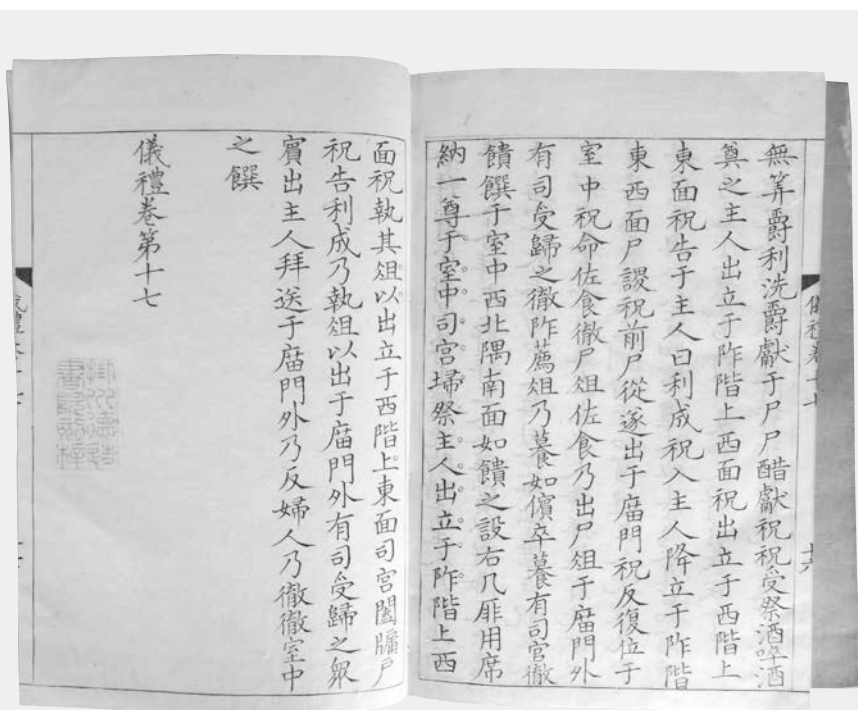 儀禮卷十七
十六
無筭爵利洗爵獻于尸尸醋獻祝祝受祭酒啐酒
奠之主人出立于阼階上西面祝出立于西階上
東面祝告于主人曰利成祝入主人降立于阼階
東西面尸謖祝前尸從遂出于庿門祝反復位于
室中祝命佐食徹尸俎佐食乃出尸俎于庿門外
有司受歸之徹阼薦俎乃䭕如儐卒䭕有司官徹
饋饌于室中西北隅南面如饋之設右几厞用席
納一尊于室中司宮埽祭主人出立于阼階上西
面祝執其俎以出立于西階上東面司宮闔牖戶
祝告利成乃執俎以出于庿門外有司受歸之眾
賓出主人拜送于庿門外乃反婦人乃徹徹室中
之饌
儀禮卷第十七